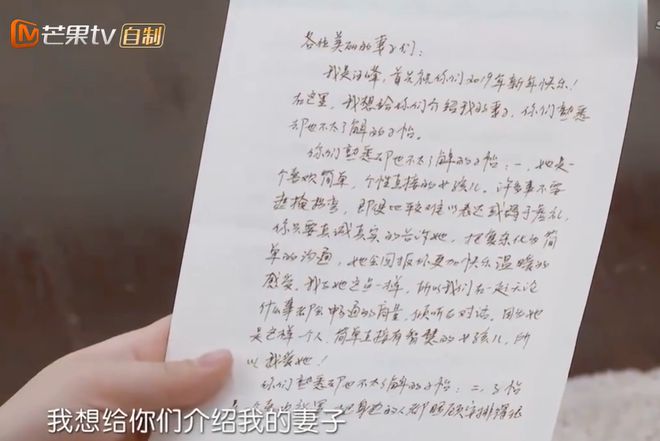 芒果tv 自制
各位美丽的妻子们：
我是汪峰，首先祝你们2019年新年快乐！
在这里，我想给你们介绍我的妻子，你们熟悉
却也不太了解的子怡。
你们熟悉却也不太了解的子怡：一，她是一
个喜欢简单，个性直接的女孩儿。许多事不要
遮遮掩掩，即便比较难以表达或碍于虚礼，
你只要真诚真实的告诉她，把复杂化为简
单的沟通，她会回报你更加快乐温暖的
感受。我和她这点一样，所以我们在一起无论
什么事都会畅通的商量，倾听和对话。因为她
是这样一个人，简单直接有智慧的女孩儿，所
以我爱她！
你们熟悉却也不太了解的子怡：二，子怡
身边的人都照顾安排得
我想给你们介绍我的妻子